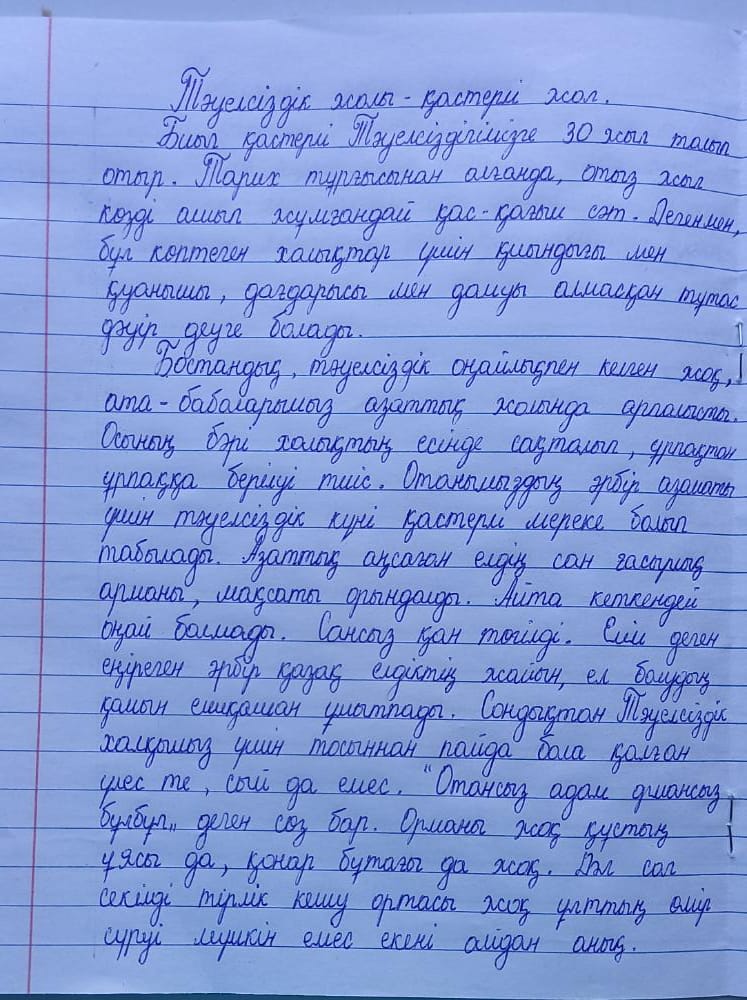 Тәуелсіздік жолы - қастерлі жол.
Биыл қастерлі Тәуелсіздігімізге 30 жыл толып
отыр. Тарих тұрғысынан алғанда, отыз жыл
көзді ашып жұмғандай қас-қағым сәт. Дегенмен,
бұл көптеген халықтар үшін қиындығы мен
қуанышы, дағдарысы мен дамуы алмасқан тұтас
дәуір деуге болады.
Бостандық, тәуелсіздік оңайлықпен келген жоқ,
ата-бабаларымыз азаттық жолында арпалысты.
Осының бәрі халықтың есінде сақталып, ұрпақтан
ұрпаққа берілуі тиіс. Отанымыздың әрбір азаматы
үшін тәуелсіздік күні қастерлі мереке болып
табылады. Азаттық аңсаған елдің сан ғасырлық
арманы, мақсаты орындалды. Айта кеткендей
оңай болмады. Сансыз қан төгілді. Елім деген
еңіреген әрбір қазақ елдіктің жайын, ел болудың
қамын ешқашан ұмытпады. Сондықтан Тәуелсіздік
халқымыз үшін тосыннан пайда бола қалған
үлес те, сый да емес. "Отансыз адам ормансыз
бұлбұл" деген сөз бар. Орманы жоқ құстың
ұясы да, қонар бұтағы да жоқ. Дәл сол
секілді тірлік кешу ортасы жоқ ұлттың өмір
сүруі мүмкін емес екені айдан анық.